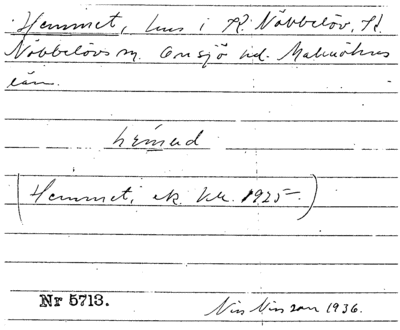 Hemmet, hus i K. Nöbbelöv, K.
Nöbbelövs sn. Onsjö hd. Malmöhus
län.
hémed
(Hemmet, ek. kr. 1925.)
Nr 5713.
1936.